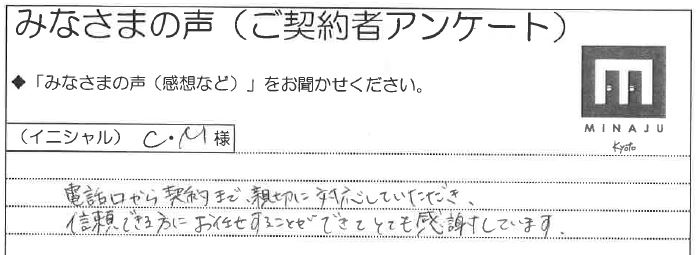 みなさまの声（ご契約者アンケート）
◆「みなさまの声（感想など）」をお聞かせください。
MINAJU
Kyoto
（イニシャル） C・M 様
電話口から契約まで、親切に対応していただき、
信頼できる方にお任せすることができてとても感謝しています。